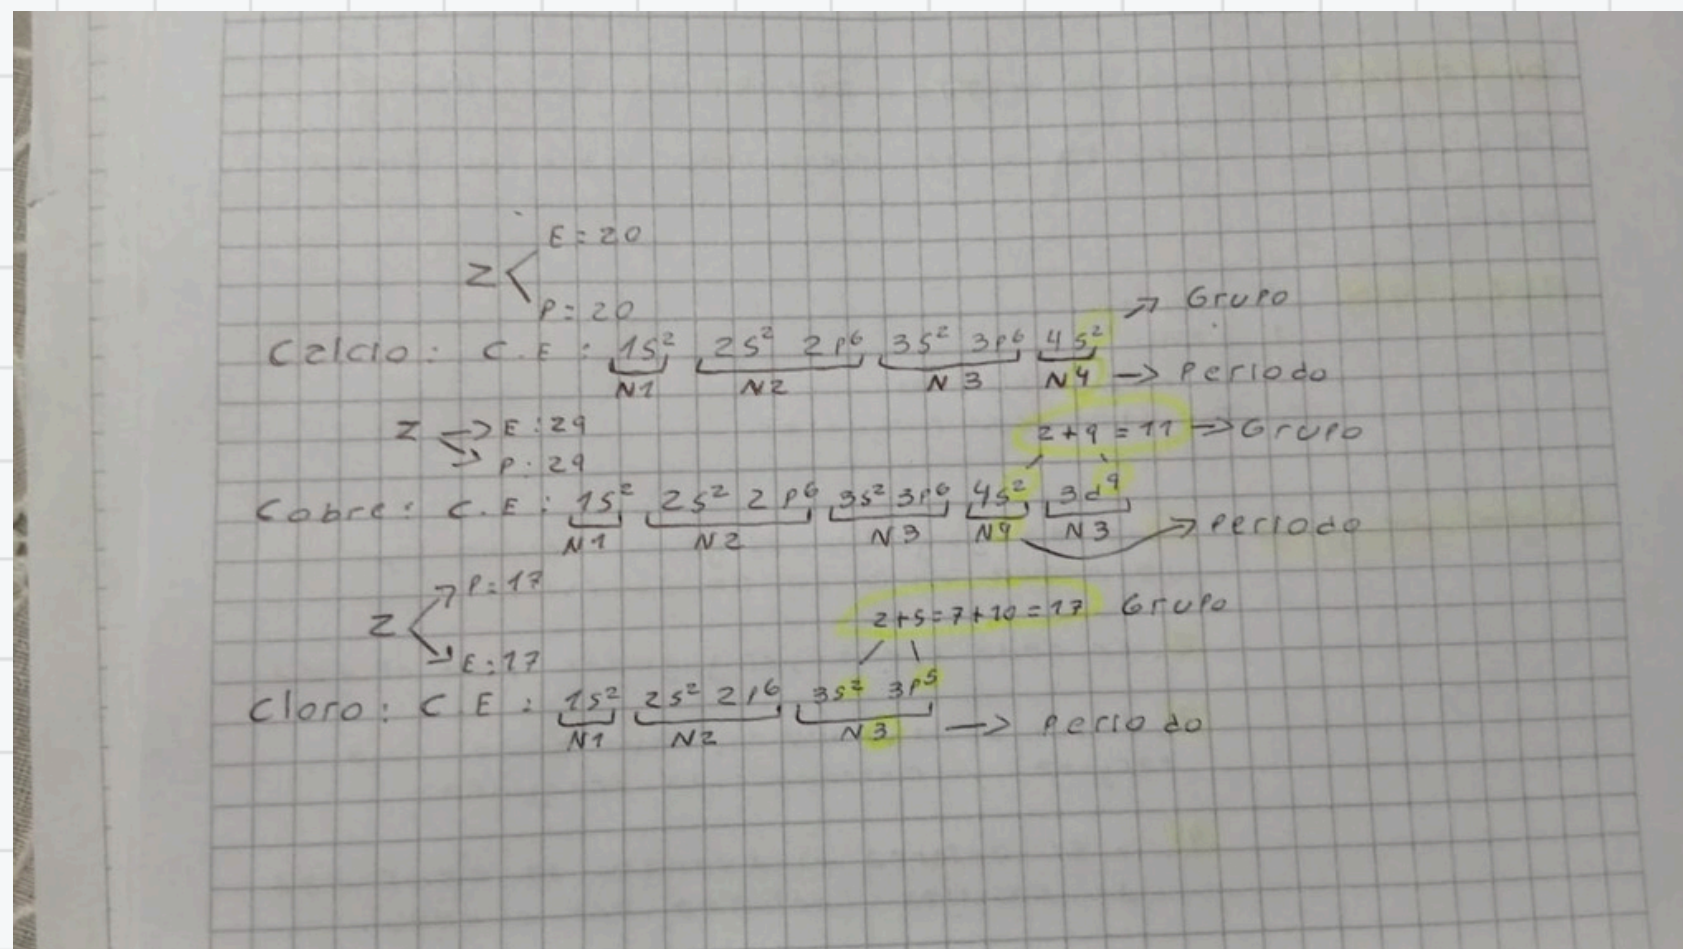 E = 20
Z
P = 20
Grupo
Calcio : C.E : 1s² 2s² 2p⁶ 3s² 3p⁶ 4s²
N1 N2 N3 N4 → Periodo
2+9 = 11 → Grupo
Z → E : 29
→ P : 29
Cobre : C.E : 1s² 2s² 2p⁶ 3s² 3p⁶ 4s² 3d⁹
N1 N2 N3 N4 N3 → Periodo
P = 17
Z
E : 17
2+5=7+10=17 Grupo
Cloro : C E : 1s² 2s² 2p⁶ 3s² 3p⁵
N1 N2 N3 → Periodo